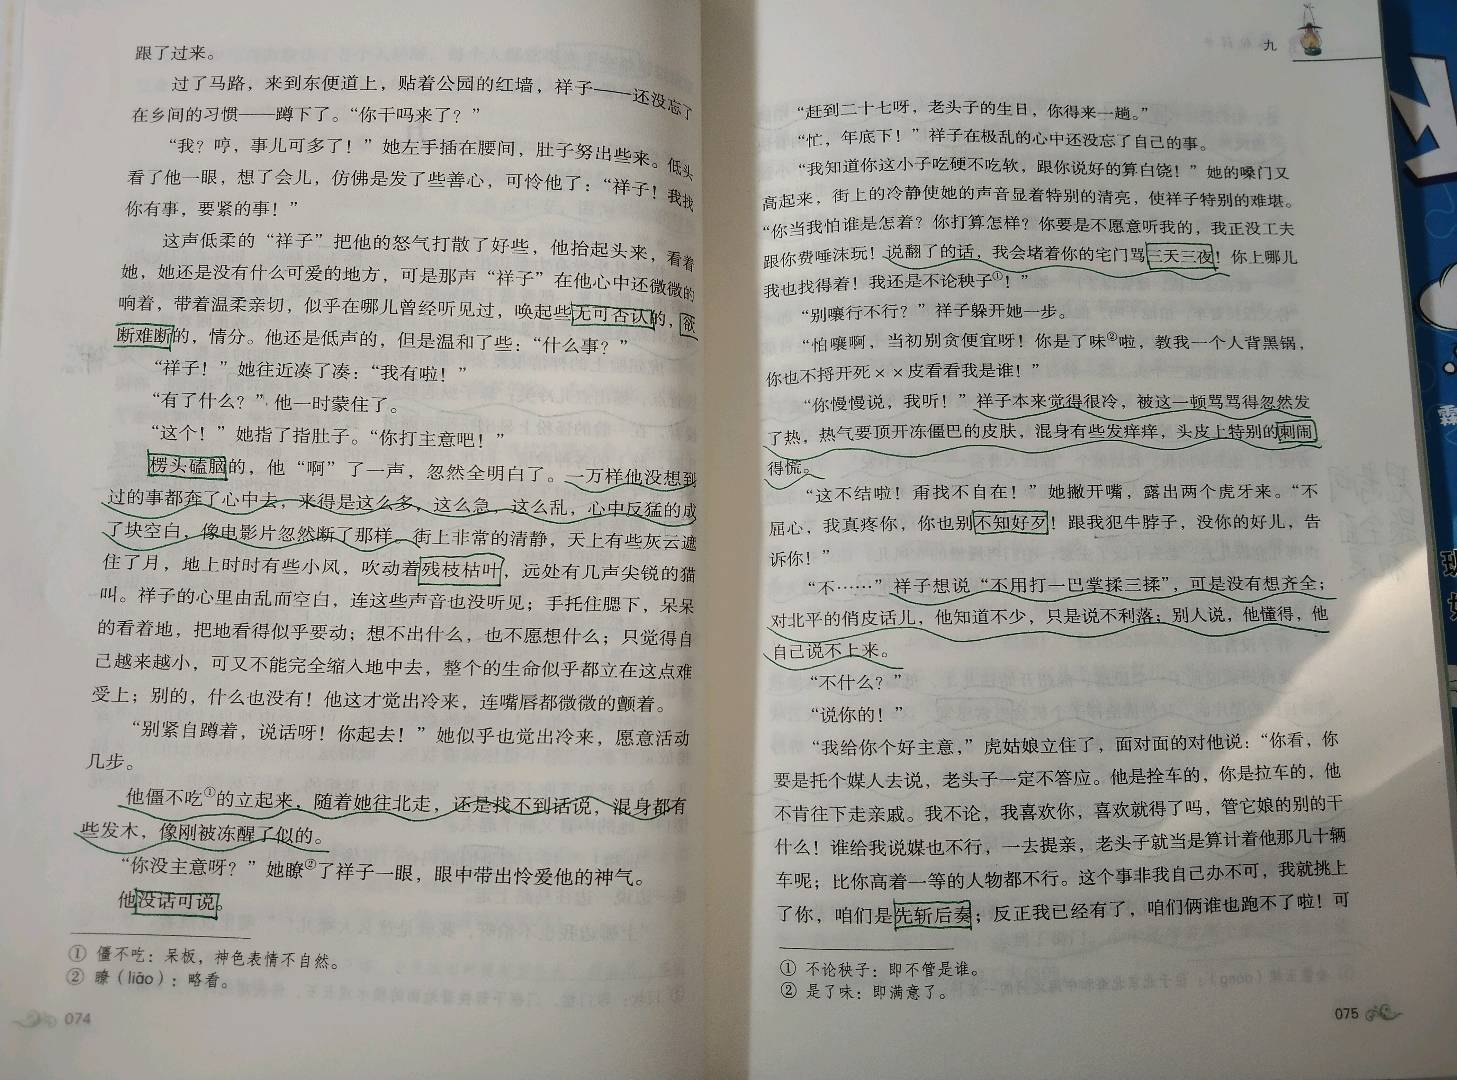 跟了过来。
过了马路，来到东便道上，贴着公园的红墙，祥子——还没忘了
在乡间的习惯——蹲下了。“你干吗来了？”
“我？哼，事儿可多了！”她左手插在腰间，肚子努出些来。低头
看了他一眼，想了会儿，仿佛是发了些善心，可怜他了：“祥子！我找
你有事，要紧的事！”
这声低柔的“祥子”把他的怒气打散了好些，他抬起头来，看着
她，她还是没有什么可爱的地方，可是那声“祥子”在他心中还微微的
响着，带着温柔亲切，似乎在哪儿曾经听见过，唤起些无可否认的，欲
断难断的，情分。他还是低声的，但是温和了些：“什么事？”
“祥子！”她往近凑了凑：“我有啦！”
“有了什么？”他一时蒙住了。
“这个！”她指了指肚子。“你打主意吧！”
楞头磕脑的，他“啊”了一声，忽然全明白了。一万样他没想到
过的事都奔了心中去，来得是这么多，这么急，这么乱，心中反猛的成
了块空白，像电影片忽然断了那样。街上非常的清静，天上有些灰云遮
住了月，地上时时有些小风，吹动着残枝枯叶，远处有几声尖锐的猫
叫。祥子的心里由乱而空白，连这些声音也没听见；手托住腮下，呆呆
的看着地，把地看得似乎要动；想不出什么，也不愿想什么；只觉得自
己越来越小，可又不能完全缩入地中去，整个的生命似乎都立在这点难
受上；别的，什么也没有！他这才觉出冷来，连嘴唇都微微的颤着。
“别紧自蹲着，说话呀！你起去！”她似乎也觉出冷来，愿意活动
几步。
他僵不吃①的立起来，随着她往北走，还是找不到话说，混身都有
些发木，像刚被冻醒了似的。
“你没主意呀？”她瞭②了祥子一眼，眼中带出怜爱他的神气。
他没话可说。
① 僵不吃：呆板，神色表情不自然。
② 瞭（liāo）：略看。
074
九
“赶到二十七呀，老头子的生日，你得来一趟。”
“忙，年底下！”祥子在极乱的心中还没忘了自己的事。
“我知道你这小子吃硬不吃软，跟你说好的算白饶！”她的嗓门又
高起来，街上的冷静使她的声音显着特别的清亮，使祥子特别的难堪。
“你当我怕谁是怎着？你打算怎样？你要是不愿意听我的，我正没工夫
跟你费唾沫玩！说翻了的话，我会堵着你的宅门骂三天三夜！你上哪儿
我也找得着！我还是不论秧子①！”
“别嚷行不行？”祥子躲开她一步。
“怕嚷啊，当初别贪便宜呀！你是了味②啦，教我一个人背黑锅，
你也不捋开死××皮看看我是谁！”
“你慢慢说，我听！”祥子本来觉得很冷，被这一顿骂骂得忽然发
了热，热气要顶开冻僵巴的皮肤，混身有些发痒痒，头皮上特别的刺闹
得慌。
“这不结啦！甭找不自在！”她撇开嘴，露出两个虎牙来。“不
屈心，我真疼你，你也别不知好歹！跟我犯牛脖子，没你的好儿，告
诉你！”
“不……”祥子想说“不用打一巴掌揉三揉”，可是没有想齐全；
对北平的俏皮话儿，他知道不少，只是说不利落；别人说，他懂得，他
自己说不上来。
“不什么？”
“说你的！”
“我给你个好主意，”虎姑娘立住了，面对面的对他说：“你看，你
要是托个媒人去说，老头子一定不答应。他是拴车的，你是拉车的，他
不肯往下走亲戚。我不论，我喜欢你，喜欢就得了吗，管它娘的别的干
什么！谁给我说媒也不行，一去提亲，老头子就当是算计着他那几十辆
车呢；比你高着一等的人物都不行。这个事非我自己办不可，我就挑上
了你，咱们是先斩后奏；反正我已经有了，咱们俩谁也跑不了啦！可
① 不论秧子：即不管是谁。
② 是了味：即满意了。
075